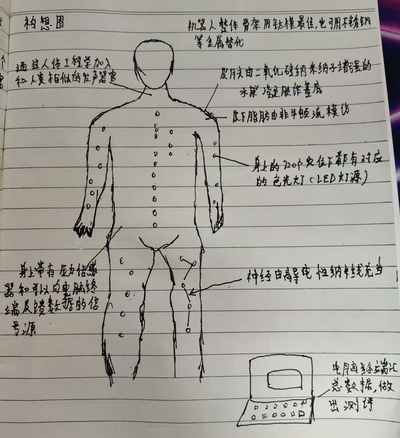 构想图
机器人整体骨架用钛模最佳,也可用不锈钢
等金属替代
通过人体工程学加入
和人类相似的发声器官
皮肤由二氧化硅纳米纳子增强的
水解 胶作基底
皮下脂肪由非牛顿流模仿
身上的720个穴位下都有对应
的色光灯(LED灯源)
身上带有应力传感
器和可以向电脑终
端反馈数据的信
号源
神经由高导电性纳米线充当
电脑终端汇
总数据,做
出测评